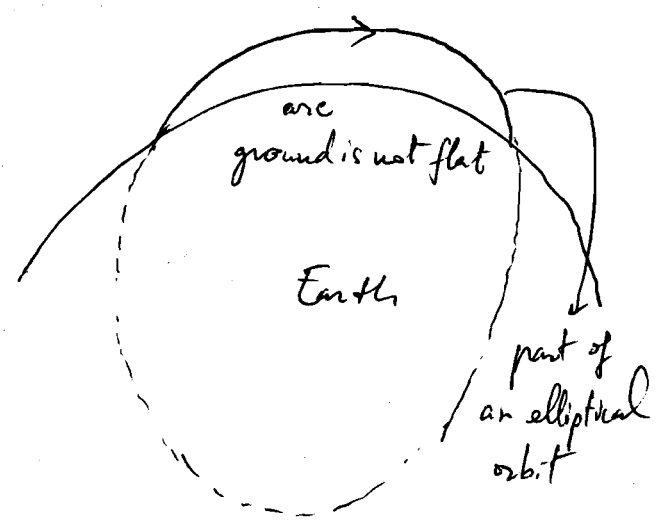 arc
ground is not flat
Earth
part of
an elliptical
orbit